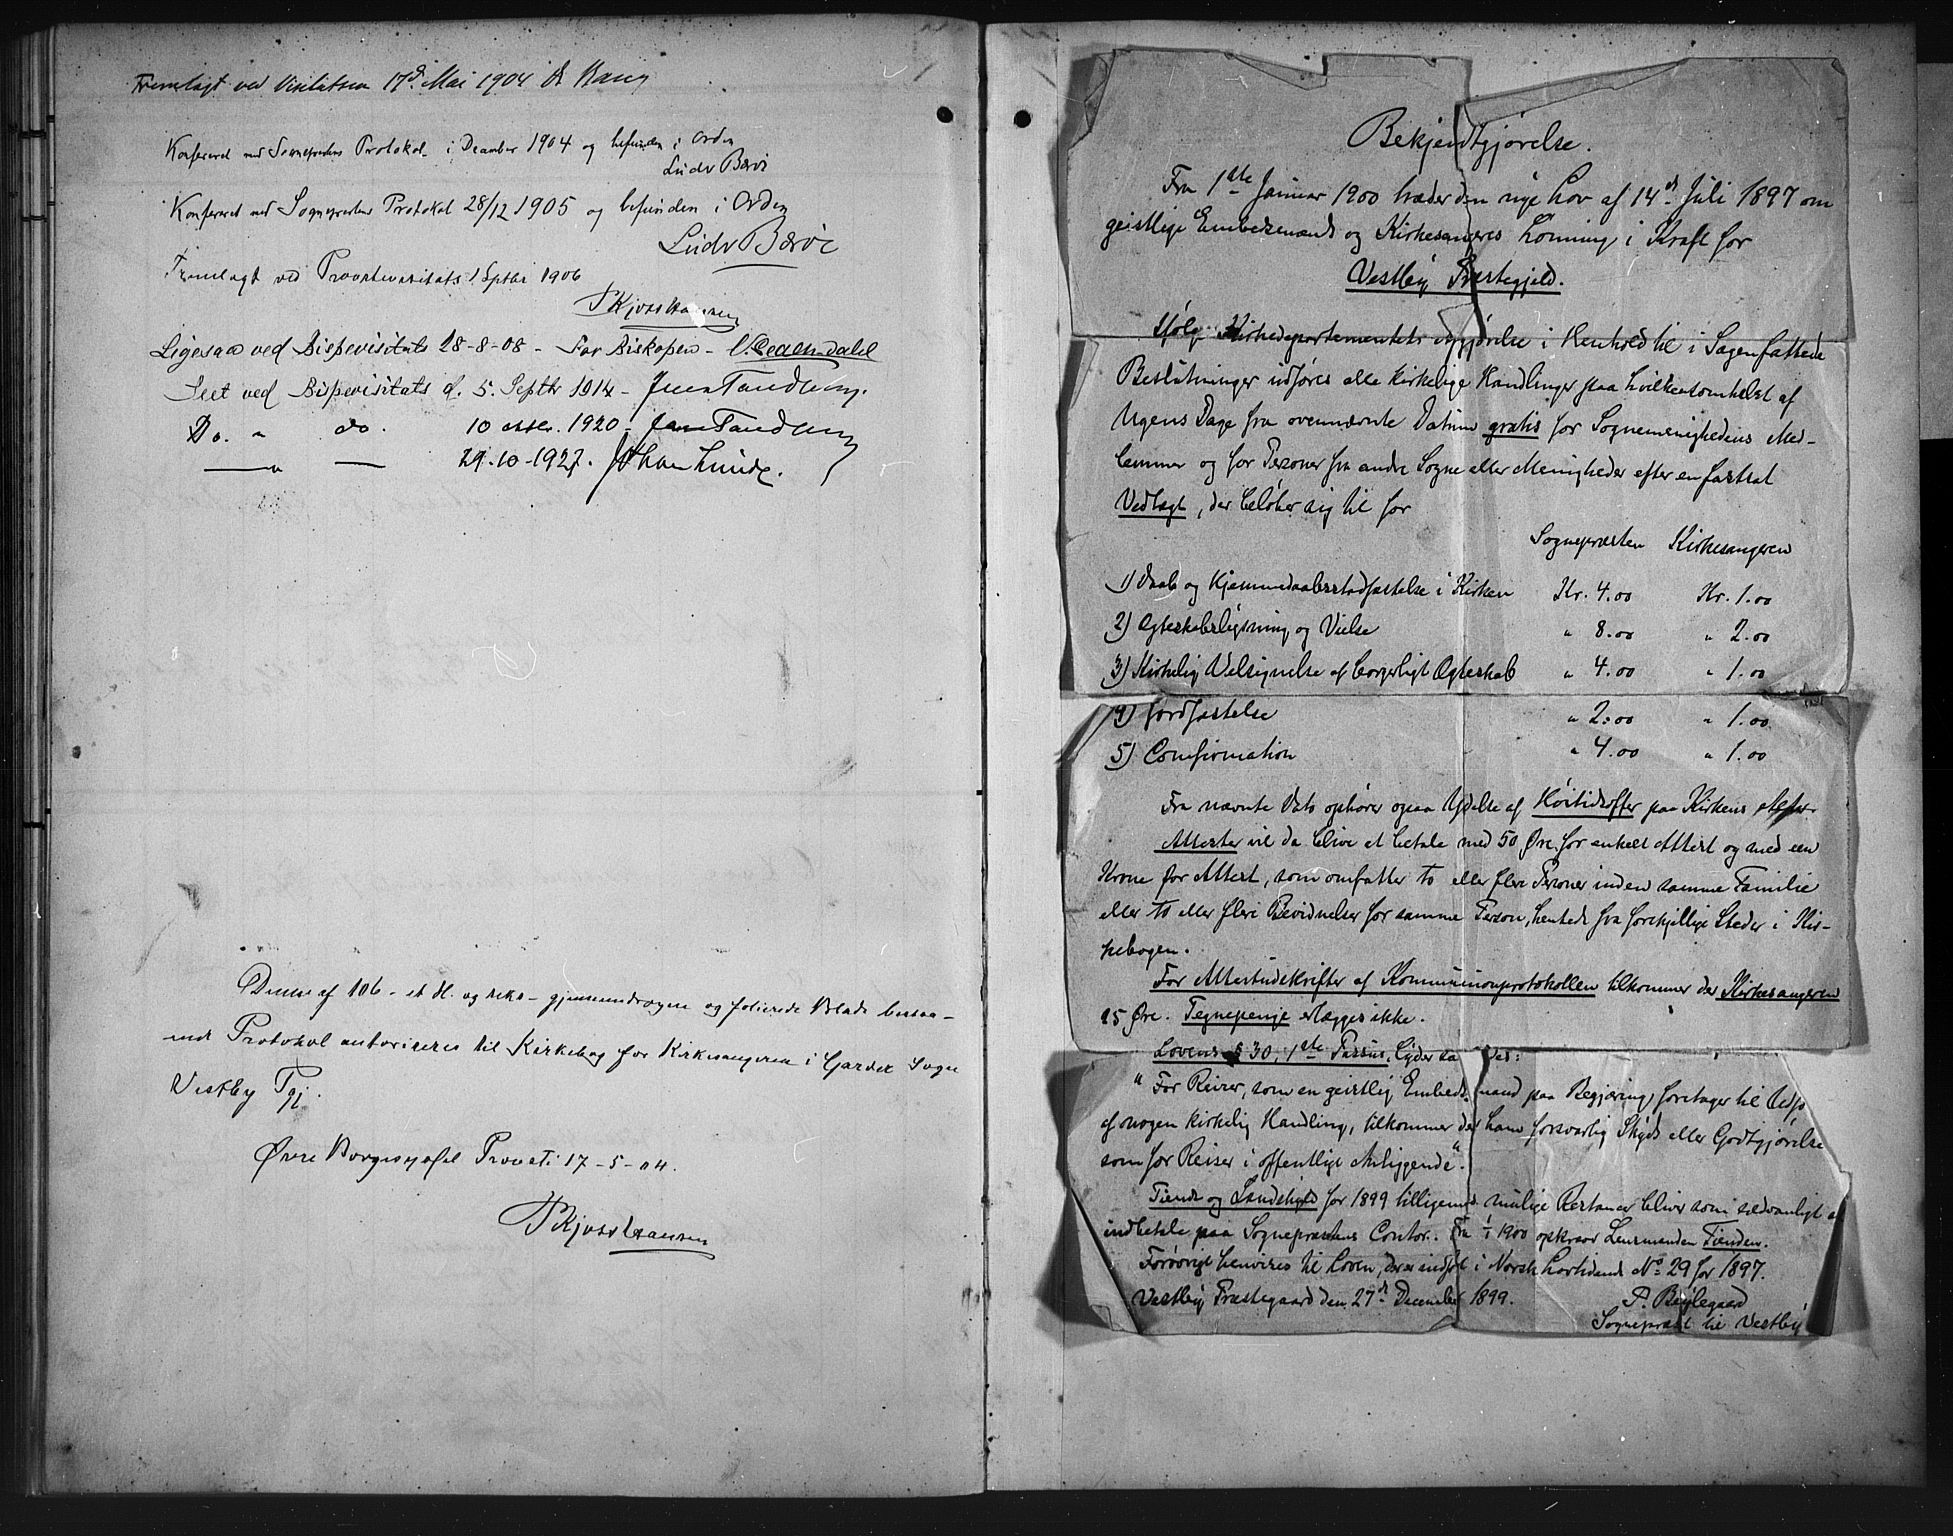 Fremlagt ved Visitatsen 17d Mai 1904 A Bang
Konfereret med Sogneprestens Protokol i December 1904 og befunden i Orden
Ludv Børvi
Konfereret med Sogneprestens Protokol 28/12 1905 og befunden i Orden
Ludv Børvi
Fremlagt ved Provstevisitats 1 Septbr 1906
Kjoss Hansen
Ligesaa ved Bispevisitats 28-8-08 - For Biskopen -
Seet ved Bispevisitats d. 5. Septbr 1914 - Jens Tandberg.
Do. " do. 10 oktbr. 1920 - Jens Tandberg
— " — 29.-10-1927. Johan Lunde.
Denne af 106 - et H. og seks - gjennemdragne og folierede Blade bestaa-
ende Protokol autoriseres til Kirkebog for Kirkesangeren i Garder Sogn
Vestby Pgj.
Øvre Borgesyssel Provsti 17-5-04.
Kjoss Hansen
Bekjendtgjørelse.
Fra 1ste Januar 1900 træder den nye Lov af 14de Juli 1897 om
geistlige Embedsmænds og Kirkesangeres Lønning i Kraft for
Vestby Præstegjeld.
Ifølge Kirkedepartementets Afgjørelse i Henhold til i Sagen fattede
Beslutninger udføres alle kirkelige Handlinger paa hvilkensomhelst af
Ugens Dage fra ovennævnte Datum gratis for Sognemenighedens Med-
lemmer og for Personer fra andre Sogne eller Menigheder efter en fastsat
Vedtægt, der beløber sig til for
Sognepræsten Kirkesangeren
1) Daab og Hjemmedaabsstadfæstelse i Kirken Kr. 4.00 Kr. 1.00
2) Ægteskabslysning og Vielse " 8.00 " 2.00
3) Kirkelig Velsignelse af borgerligt Ægteskab " 4.00 " 1.00
4) Jordfæstelse " 2.00 " 1.00
5) Comfirmation " 4.00 " 1.00
Fra nævnte Dato ophører ogsaa Ydelse af Høitidsoffer paa Kirkens Alter.
Attester vil da blive at betale med 50 Øre for enkelt Attest og med een
Krone for Attest, som omfatter to eller flere Personer inden samme Familie
eller to eller flere Bevidnelser for samme Person, hentede fra forskjellige Steder i Kir-
kebogen.
For Attestudskrifter af Kommunionprotokollen tilkommer der Kirkesangeren
25 Øre. Tegnepenge erlægges ikke.
Lovens § 30, 1ste Passus, lyder saaledes:
"For Reiser, som en geistlig Embedsmand paa Begjæring foretager til Udfø
af nogen kirkelig Handling, tilkommer der ham forsvarlig Skyds eller Godtgjørelse
som for Reiser i offentlige Anliggende".
Tiende og Landskyld for 1899 tilligemed mulige Restancer bliver som sædvanligt at
indbetale paa Sognepræstens Contor. Fra 1/1 1900 opkræver Lensmanden Tienden.
Forøvrigt henvises til Loven, der er indført i Norsk Lovtidende No 29 for 1897.
Vestby Præstegaard den 27de December 1899.
P. Bøylegaard
Sognepræst til Vestby